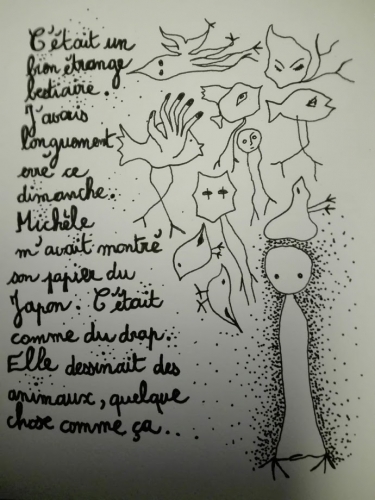 C'était un
bien étrange
bestiaire.
J'avais
longuement
erré ce
dimanche.
Michèle
m'avait montré
son papier du
Japon. C'était
comme du drap.
Elle dessinait des
animaux, quelque
chose comme ça..